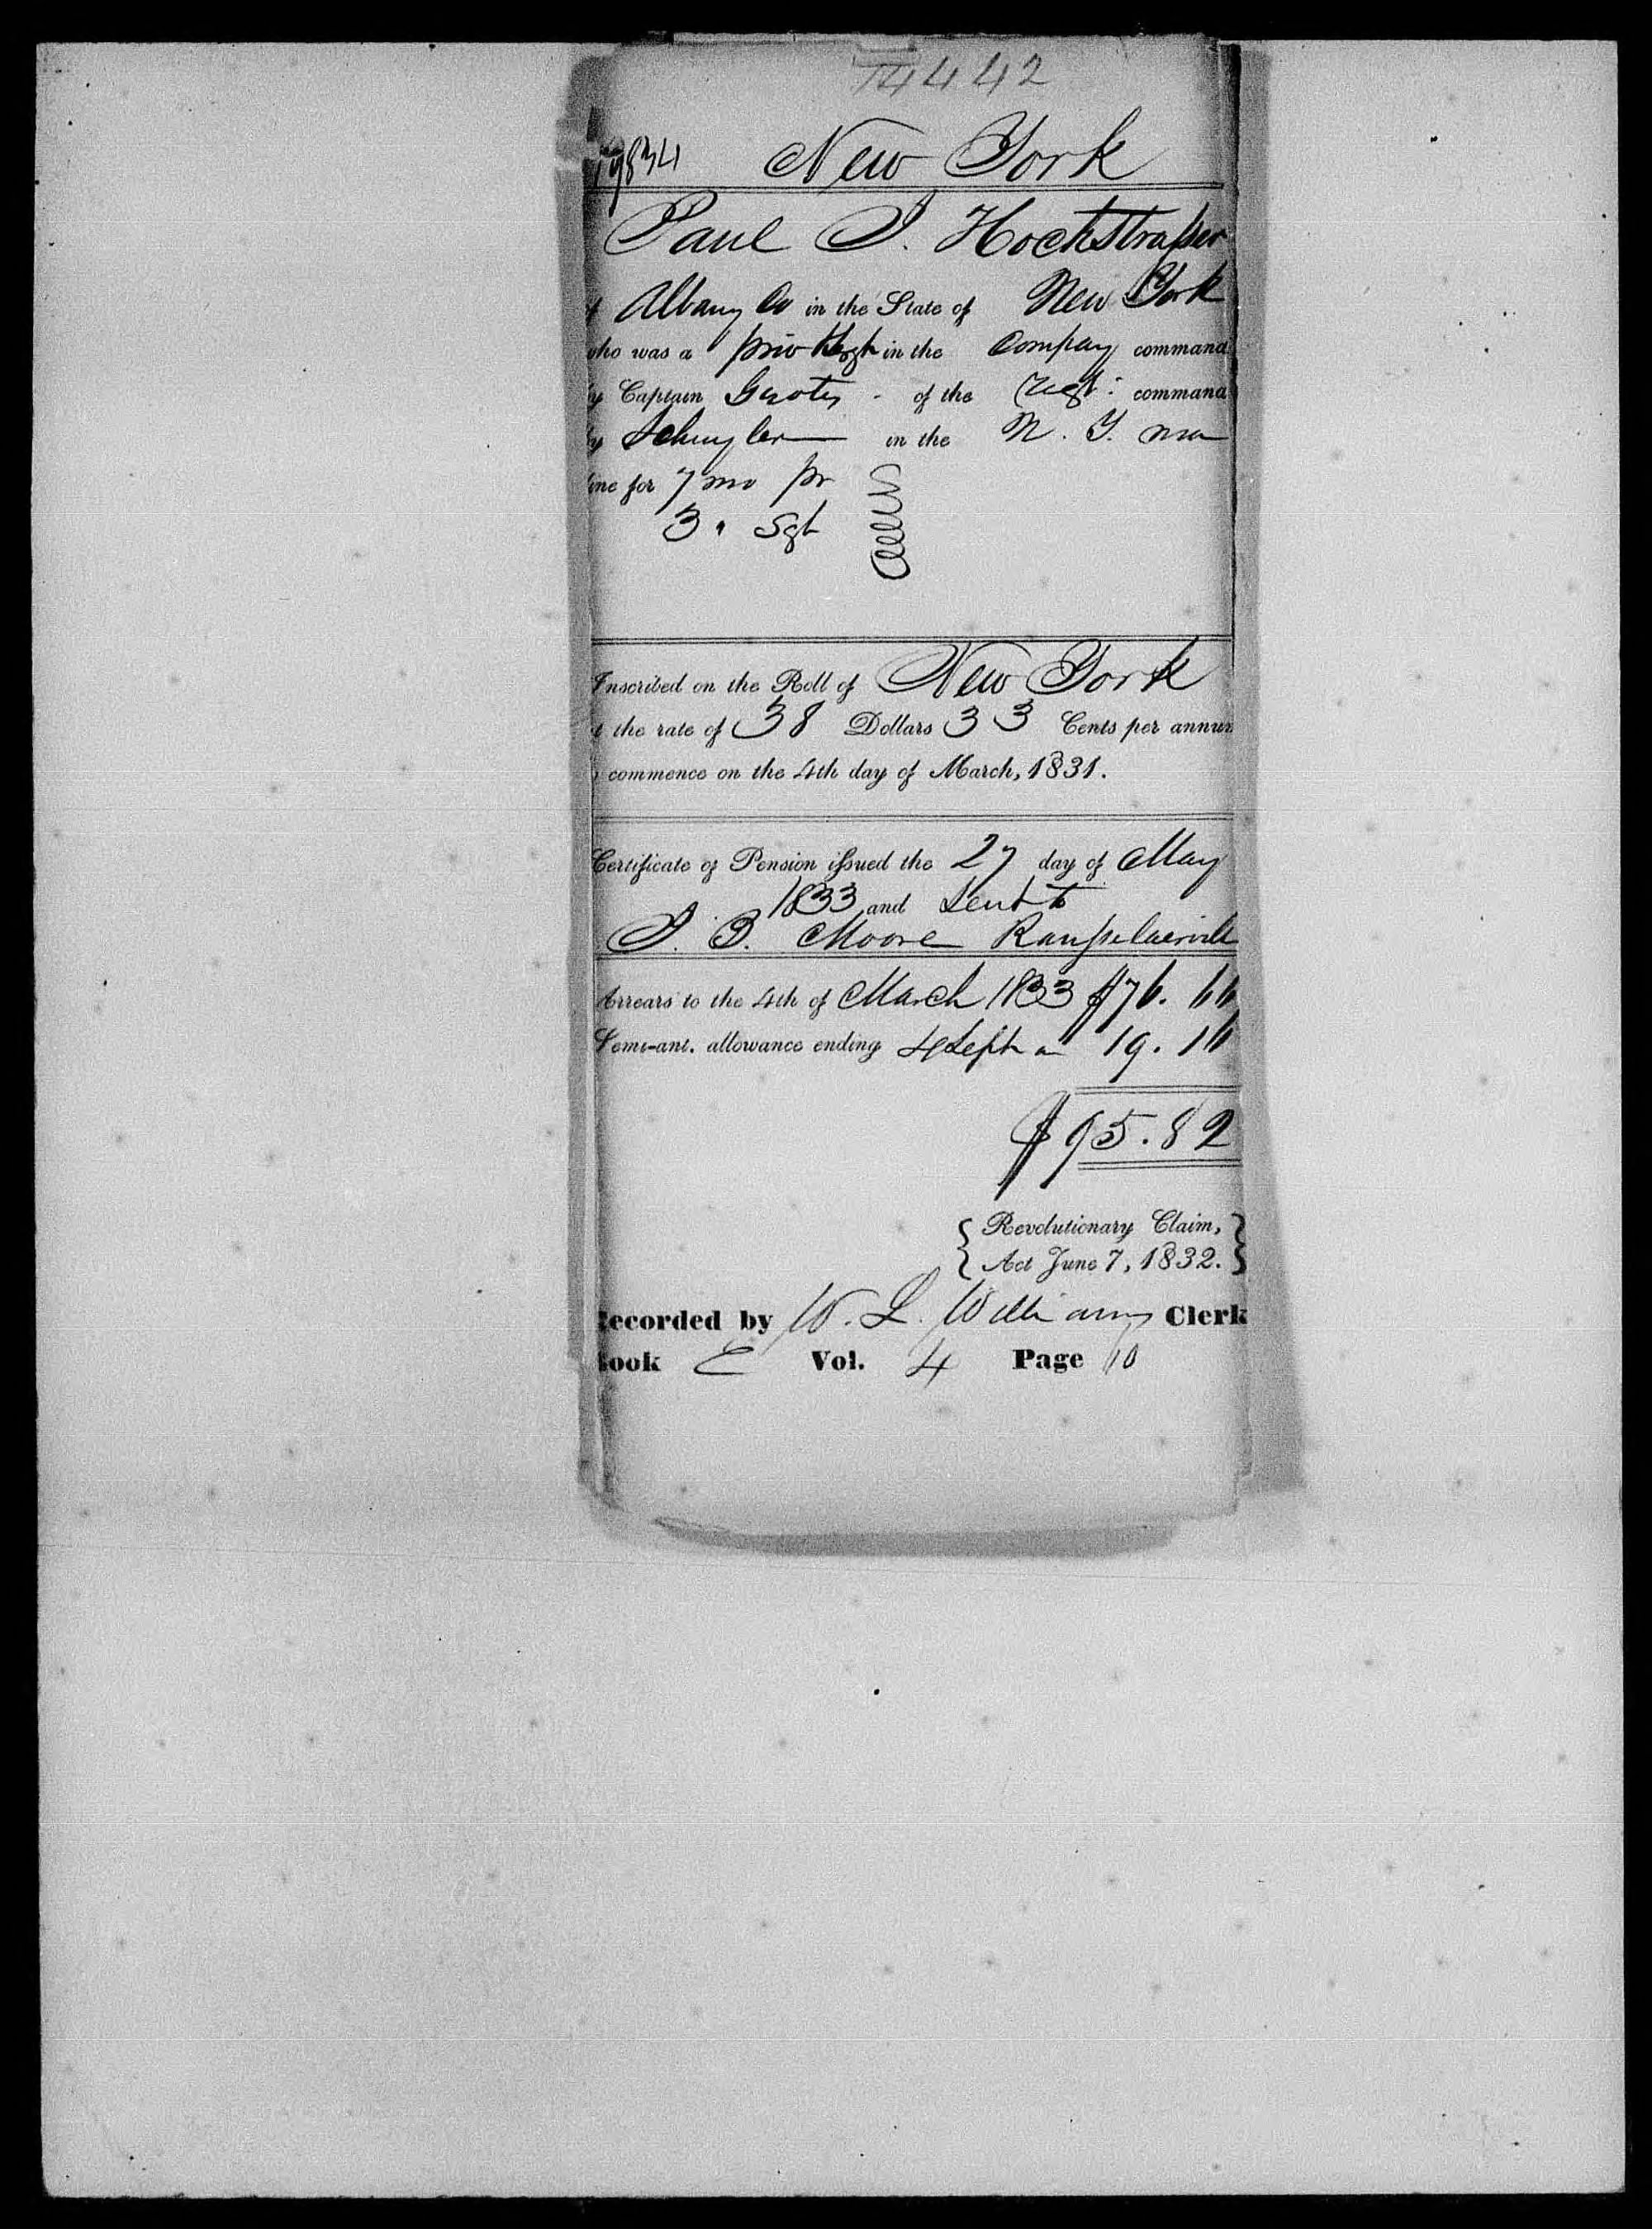 14442
19834 New York
Paul I. Hochstrasser
Albany Co in the State of New York
who was a priv & Sgt in the Company command
by Captain Groots - of the Regt. command
by Schuyler in the N. Y.
line for 7 mo pr
3 " Sgt
Inscribed on the Roll of New York
at the rate of 38 Dollars 33 Cents per annum
commence on the 4th day of March, 1831.
Certificate of Pension issued the 27 day of May
1833 and Sent to
J. B. Moore Rensselaerville
Arrears to the 4th of March 1833 $76.66
Semi-anl. allowance ending 4 Sept 19.16
$95.82
{ Revolutionary Claim, }
{ Act June 7, 1832. }
Recorded by W. L. Williams Clerk
Book E Vol. 4 Page 10